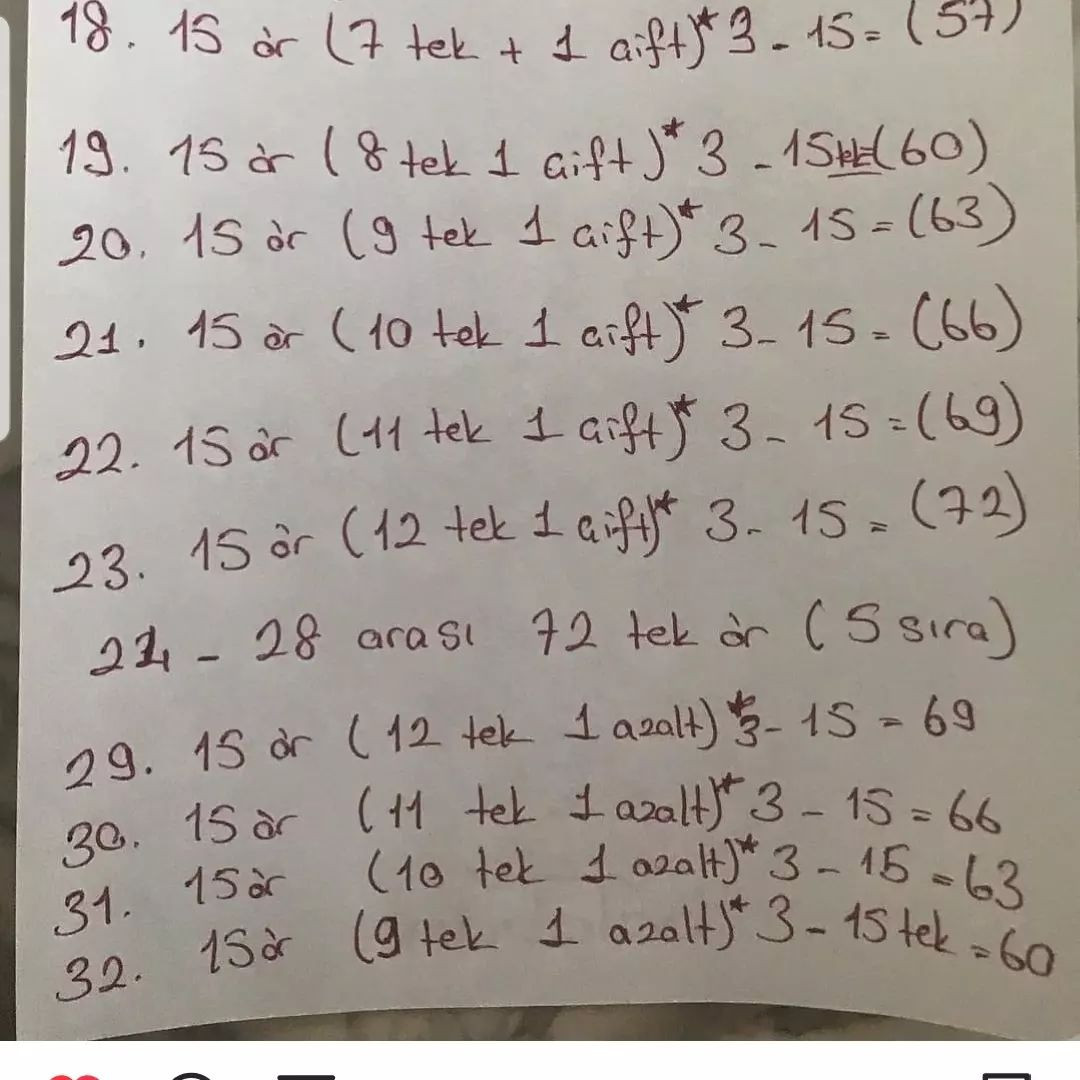 18. 15 ör (7 tek + 1 çift)* 3 - 15 = (57)
19. 15 ör (8 tek 1 çift)* 3 - 15 tek (60)
20. 15 ör (9 tek 1 çift)* 3 - 15 = (63)
21. 15 ör (10 tek 1 çift)* 3 - 15 = (66)
22. 15 ör (11 tek 1 çift)* 3 - 15 = (69)
23. 15 ör (12 tek 1 çift)* 3 - 15 = (72)
24 - 28 arası 72 tek ör (5 sıra)
29. 15 ör (12 tek 1 azalt)* 3 - 15 = 69
30. 15 ör (11 tek 1 azalt)* 3 - 15 = 66
31. 15 ör (10 tek 1 azalt)* 3 - 15 = 63
32. 15 ör (9 tek 1 azalt)* 3 - 15 tek = 60